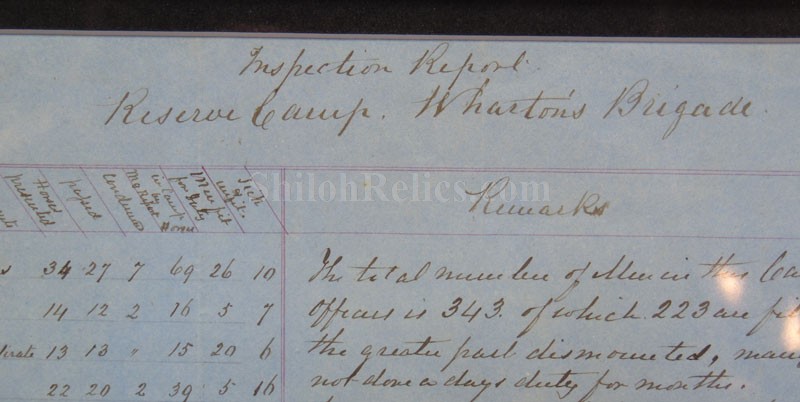 Inspection Report.
Reserve Camp. Wharton's Brigade.
Horses presented
passed
condemned
in Camp
Horses
Men fit for duty
Sick & unfit
Remarks
ShilohRelics.com
34 27 7 69 26 10 The total number of Men in this Ca
14 12 2 16 5 7 Officers is 343. of which 223 are fit
13 13 " 15 20 6 the greater part dismounted, many
22 20 2 39 5 16 not done a days duty for months.